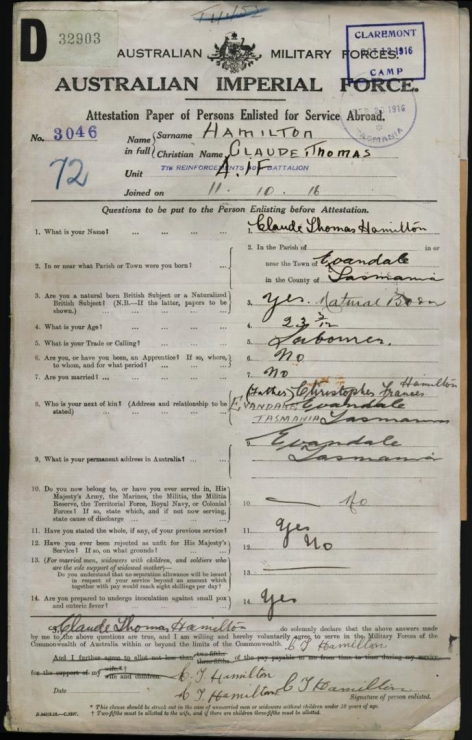 D 32903
AUSTRALIAN MILITARY FORCES.
CLAREMONT
1916
CAMP
AUSTRALIAN IMPERIAL FORCE.
1916
TASMANIA
Attestation Paper of Persons Enlisted for Service Abroad.
No. 3046
72
Name in full Surname HAMILTON
Christian Name CLAUDE THOMAS
Unit A.I.F
7TH REINFORCEMENTS BATTALION
Joined on 11. 10. 16
Questions to be put to the Person Enlisting before Attestation.
1. What is your Name? ... 1. Claude Thomas Hamilton
2. In or near what Parish or Town were you born? ... 2. In the Parish of in or
near the Town of Evandale
in the County of Tasmania
3. Are you a natural born British Subject or a Naturalized
British Subject? (N.B.—If the latter, papers to be
shown.) 3. Yes. Natural Born
4. What is your Age? ... 4. 23 3/12
5. What is your Trade or Calling? ... 5. Labourer
6. Are you, or have you been, an Apprentice? If so, where,
to whom, and for what period? ... 6. No
7. Are you married? ... 7. No
8. Who is your next of kin? (Address and relationship to be
stated) 8. (Father) Christopher Frances Hamilton
EVANDALE Evandale
TASMANIA Tasmania
9. What is your permanent address in Australia? ... 9. Evandale
Tasmania
10. Do you now belong to, or have you ever served in, His
Majesty's Army, the Marines, the Militia, the Militia
Reserve, the Territorial Force, Royal Navy, or Colonial
Forces? If so, state which, and if not now serving,
state cause of discharge ... 10. No
11. Have you stated the whole, if any, of your previous service? 11. Yes
12. Have you ever been rejected as unfit for His Majesty's
Service? If so, on what grounds? 12. No
13. (For married men, widowers with children, and soldiers who
are the sole support of widowed mother)—
Do you understand that no separation allowance will be issued
in respect of your service beyond an amount which
together with pay would reach eight shillings per day? 13.
14. Are you prepared to undergo inoculation against small pox
and enteric fever? 14. Yes
I, Claude Thomas Hamilton do solemnly declare that the above answers made
by me to the above questions are true, and I am willing and hereby voluntarily agree to serve in the Military Forces of the
Commonwealth of Australia within or beyond the limits of the Commonwealth. C T Hamilton
And I further agree to allot not less than two-fifths three-fifths of the pay payable to me from time to time during my service
for the support of my wife wife and children. C. T Hamilton
Date C T Hamilton C T Hamilton
Signature of person enlisted.
* This clause should be struck out in the case of unmarried men or widowers without children under 18 years of age.
† Two-fifths must be allotted to the wife, and if there are children three-fifths must be allotted.